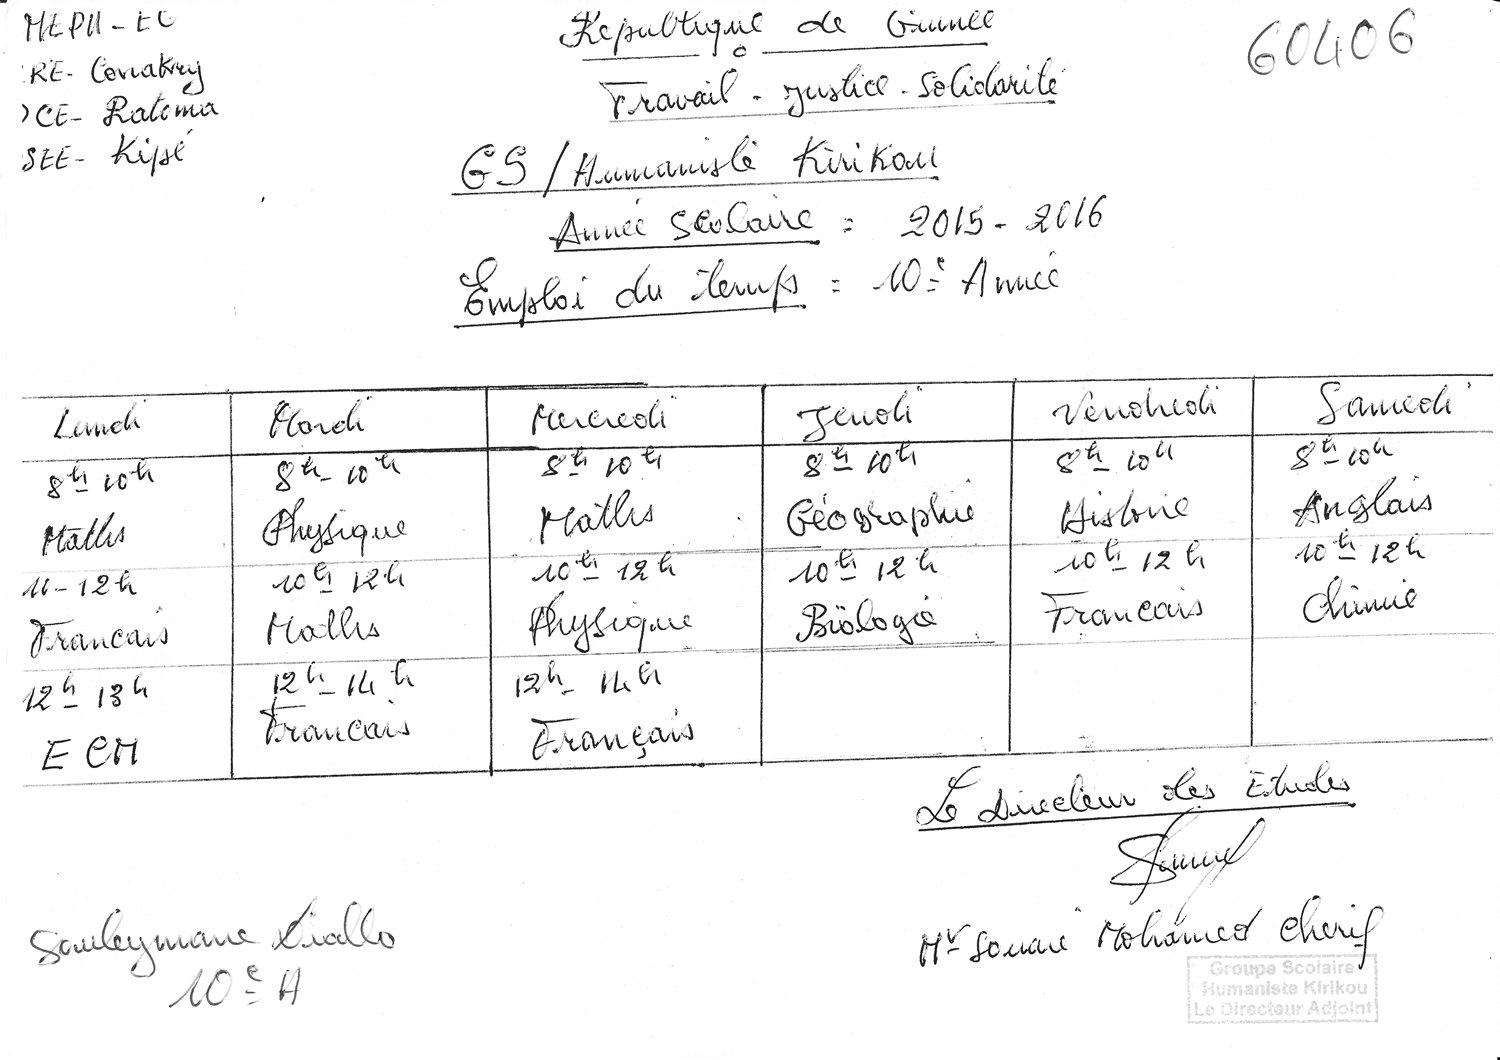 MEPU-EC
République de Guinée
60406
RE- Conakry
Travail - Justice - Solidarité
DCE- Ratoma
SEE- Kipé
GS/Humaniste Kirikou
Année Scolaire : 2015-2016
Emploi du temps : 10e Année
Lundi Mardi Mercredi Jeudi Vendredi Samedi
8h-10h 8h-10h 8h-10h 8h-10h 8h-10h 8h-10h
Maths Physique Maths Géographie Histoire Anglais
11-12h 10h-12h 10h-12h 10h-12h 10h-12h 10h-12h
Francais Maths Physique Biologie Francais Chimie
12h-13h 12h-14h 12h-14h
ECM Francais Français
Le Directeur des Etudes
Souleymane Diallo
10e A
Mr Souaré Mohamed Cherif
Groupe Scolaire
Humaniste Kirikou
Le Directeur Adjoint